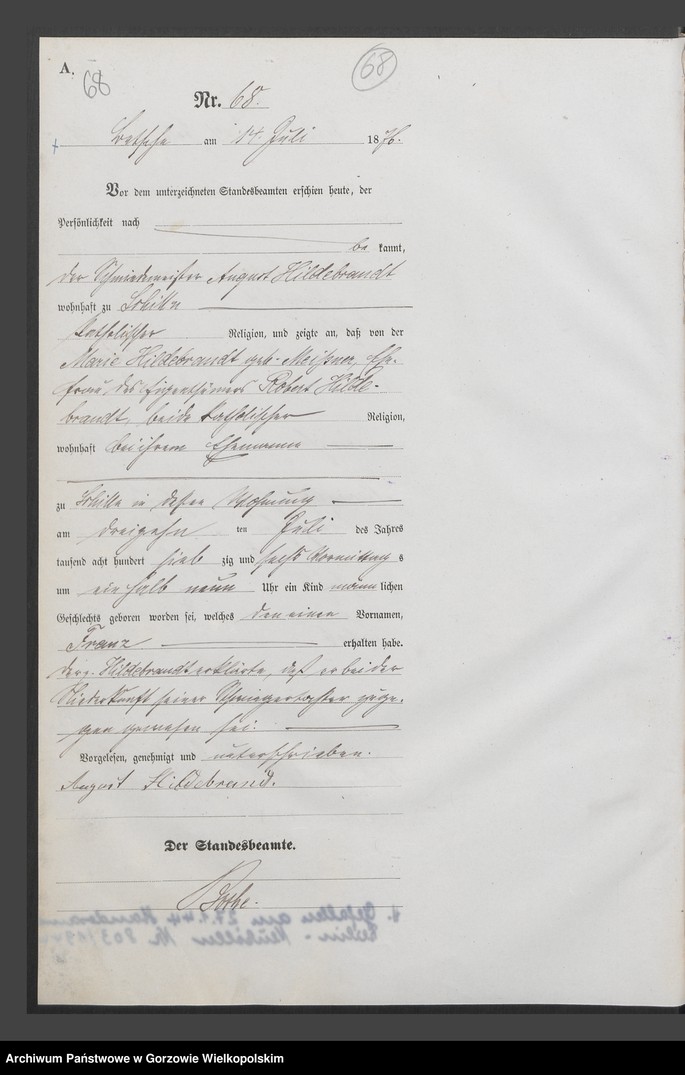 A.
68
68
Nr. 68.
Betsche am 14. Juli 1876.
Vor dem unterzeichneten Standesbeamten erschien heute, der
Persönlichkeit nach
be kannt,
der Schmiedemeister August Hildebrandt
wohnhaft zu
katholischer Religion, und zeigte an, daß von der
Marie Hildebrandt geb. Meißner, Ehe-
frau des Eigenthümers Robert Hilde-
brandt, beide katholischer Religion,
wohnhaft bei ihrem Ehemanne
zu in dessen Wohnung
am dreizehn ten Juli des Jahres
tausend acht hundert sieb zig und sechs Vormittag s
um ein halb neun Uhr ein Kind männ lichen
Geschlechts geboren worden sei, welches den einen Vornamen,
Franz erhalten habe.
Der p. Hildebrandt erklärte, daß er bei der
Niederkunft seiner Schwiegertochter zuge-
gen gewesen sei.
Vorgelesen, genehmigt und unterschrieben.
August Hildebrand.
Der Standesbeamte.
Bothe.
Archiwum Państwowe w Gorzowie Wielkopolskim